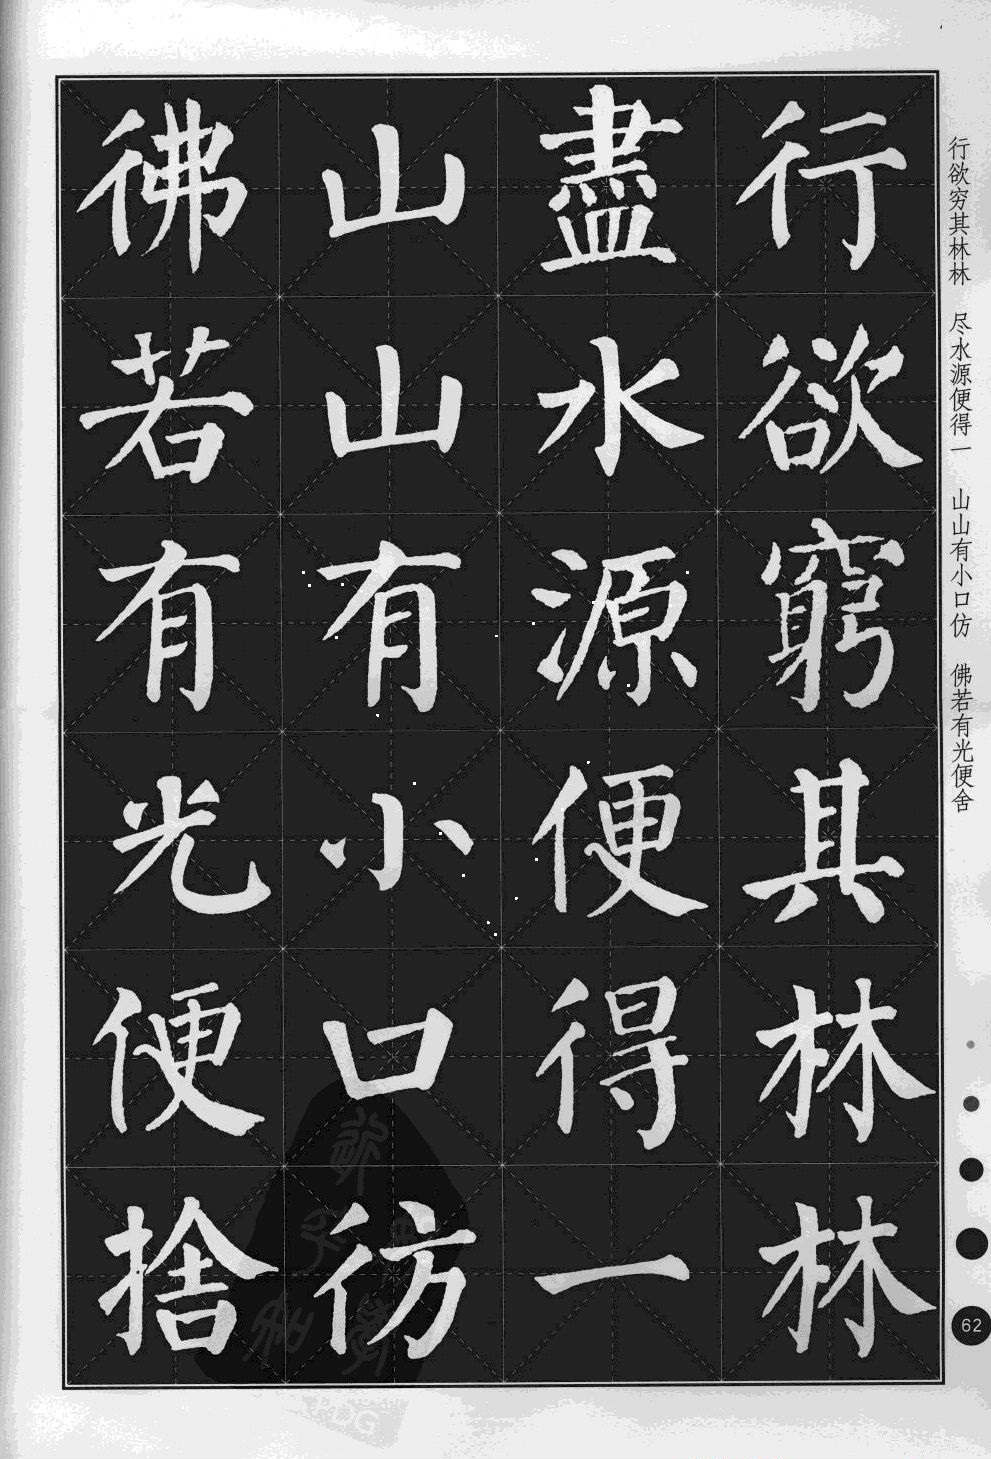 行欲窮其林林
盡水源便得一
山山有小口彷
彿若有光便捨
行欲穷其林林 尽水源便得一 山山有小口仿 佛若有光便舍
62
PDG